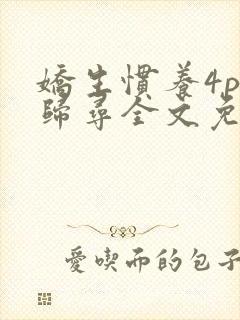 嬌生慣養4p
歸尋全文免
愛喫而的包子